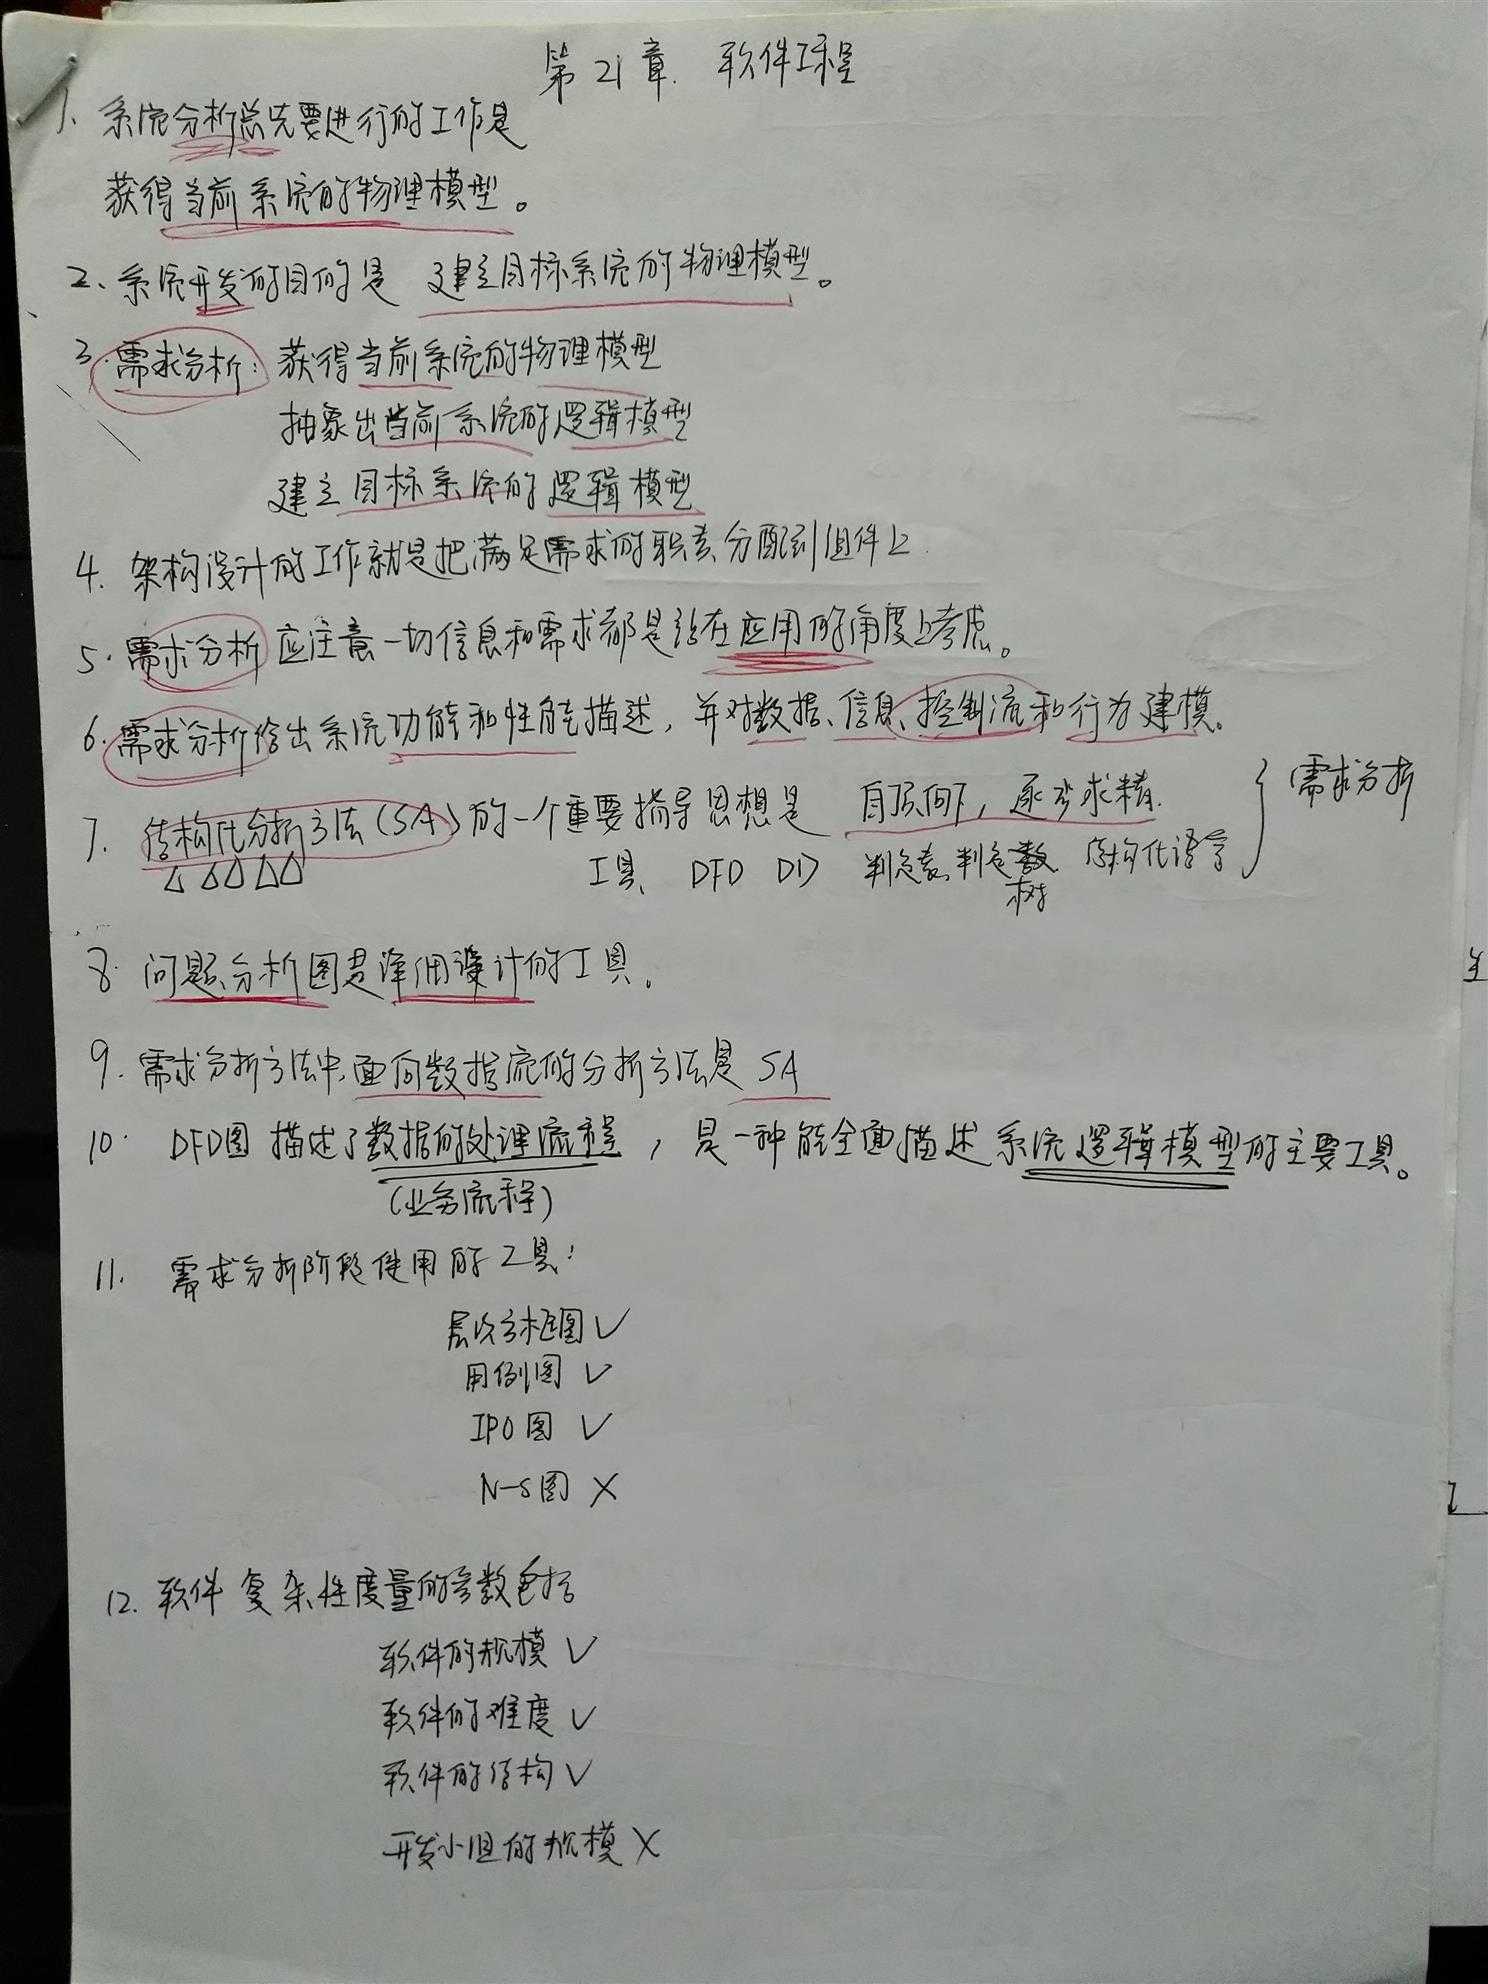 第21章. 软件工程
1、系统分析总先要进行的工作是
获得当前系统的物理模型。
2、系统开发的目的是 建立目标系统的物理模型。
3. 需求分析: 获得当前系统的物理模型
抽象出当前系统的逻辑模型
建立目标系统的逻辑模型
4. 架构设计的工作就是把满足需求的职责分配到组件上.
5. 需求分析应注意一切信息和需求都是站在应用的角度上考虑。
6. 需求分析给出系统功能和性能描述, 并对数据、信息、控制流和行为建模。
7. 结构化分析方法(SA)的一个重要指导思想是 自顶向下, 逐步求精.
工具、 DFD DD 判定表、判定树 结构化语言
需求分析
8. 问题分析图是详细设计的工具。
9. 需求分析方法中,面向数据流的分析方法是SA
10. DFD图描述了数据的处理流程, 是一种能全面描述系统逻辑模型的主要工具。
(业务流程)
11. 需求分析阶段使用的工具:
层次方框图 √
用例图 √
IPO图 √
N-S图 X
12. 软件复杂性度量的参数包括
软件的规模 √
软件的难度 √
软件的结构 √
开发小组的规模 X